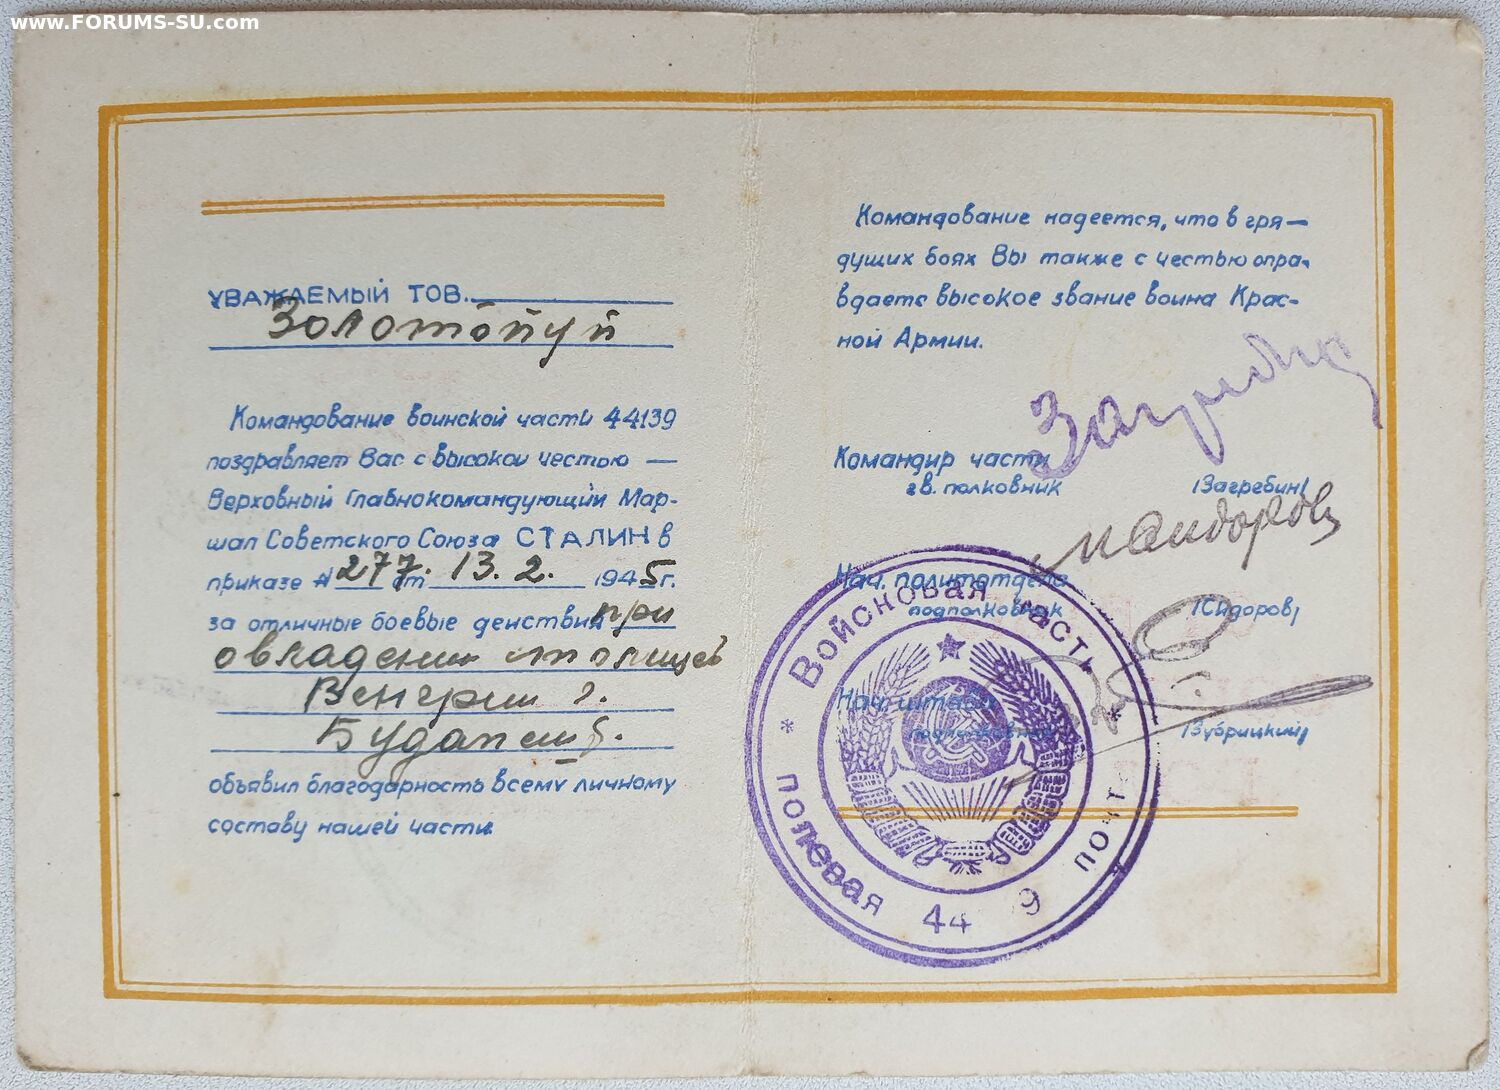 www.FORUMS-SU.com
УВАЖАЕМЫЙ ТОВ.
Золотопуп
Командование воинской части 44139
поздравляет Вас с высокой честью —
Верховный Главнокомандующий Мар-
шал Советского Союза СТАЛИН в
приказе № 277. от 13. 2. 1945 г.
за отличные боевые действия при
овладении столицей
Венгрии г.
Будапешт.
объявил благодарность всему личному
составу нашей части.
Командование надеется, что в гря—
дущих боях Вы также с честью опра-
вдаете высокое звание воина Крас-
ной Армии.
Командир части
гв. полковник /Загребин/
Нач. политотдела
подполковник /Сидоров/
Нач. штаба
подполковник /Зубрицкий/
* Войсковая часть *
полевая почта
44 9